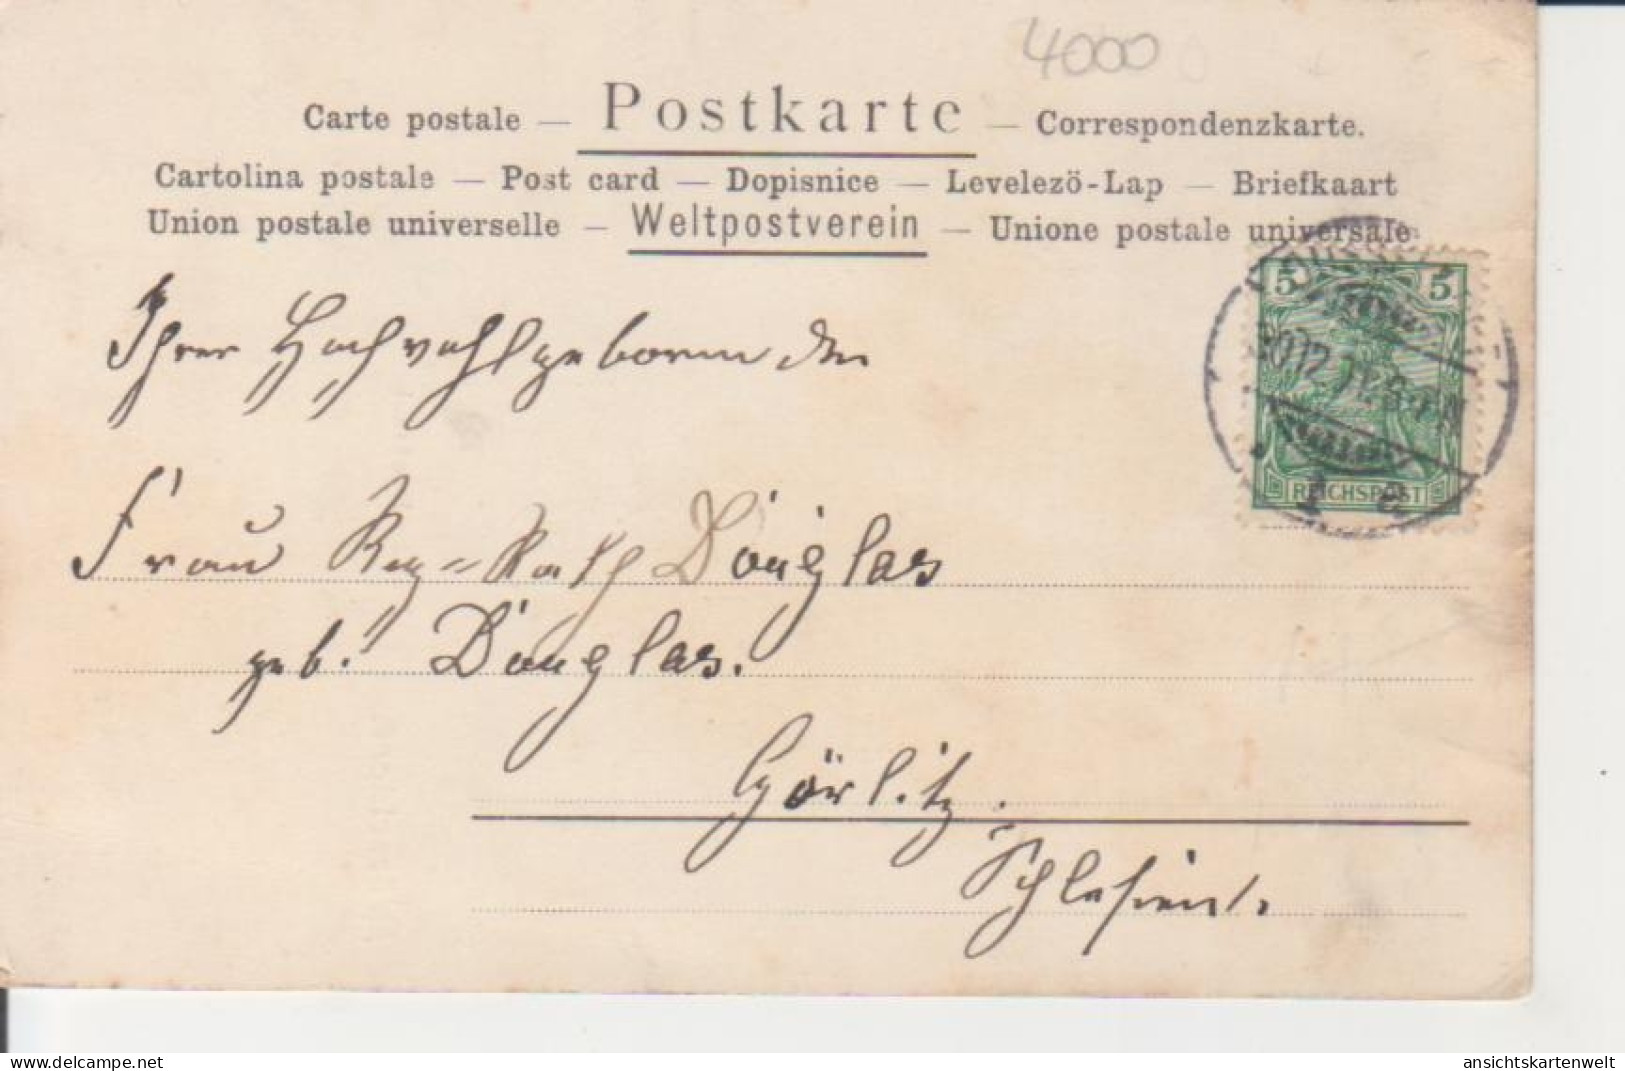 4000
Carte postale — Postkarte — Correspondenzkarte.
Cartolina postale — Post card — Dopisnice — Levelezö-Lap — Briefkaart
Union postale universelle — Weltpostverein — Unione postale universale
5 5
REICHSPOST
Ihrer Hochwohlgeboren der
Frau Reg-Rath Douglas
geb. Douglas.
Görlitz.
Schlesien.
delcampe.net
ansichtskartenwelt